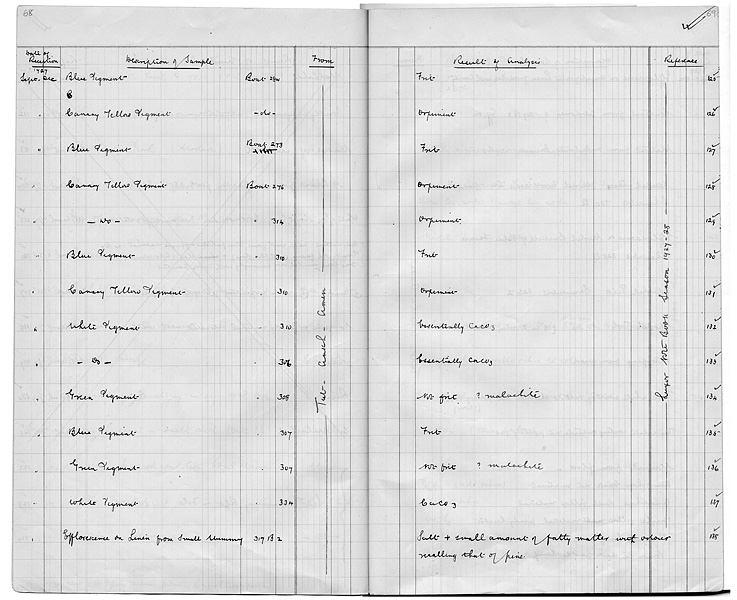 68 69
Date of Reception Description of Sample From Result of Analysis Reference
1927
Sept. Dec Blue Pigment Boat Frit 125
Canary Yellow Pigment - do - Orpiment 126
" Blue Pigment Boat 273 Frit 127
" Canary Yellow Pigment Boat 276 Orpiment 128
" - do - " 314 Orpiment 129
" Blue Pigment " 310 Frit 130
" Canary Yellow Pigment " 310 Orpiment 131
" White Pigment " 310 Essentially CaCO3 132
" - Do - " 306 Essentially CaCO3 133
" Green Pigment " 308 Not frit ? malachite 134
" Blue Pigment " 307 Frit 135
" Green Pigment " 307 Not frit ? malachite 136
" White Pigment " 334 CaCO3 137
" Efflorescence on Linen from Small Mummy 317 B 2 Salt + small amount of fatty matter with odour 138
recalling that of pine
Tut-Ankh-Amen
Luxor Note Book Season 1927-28